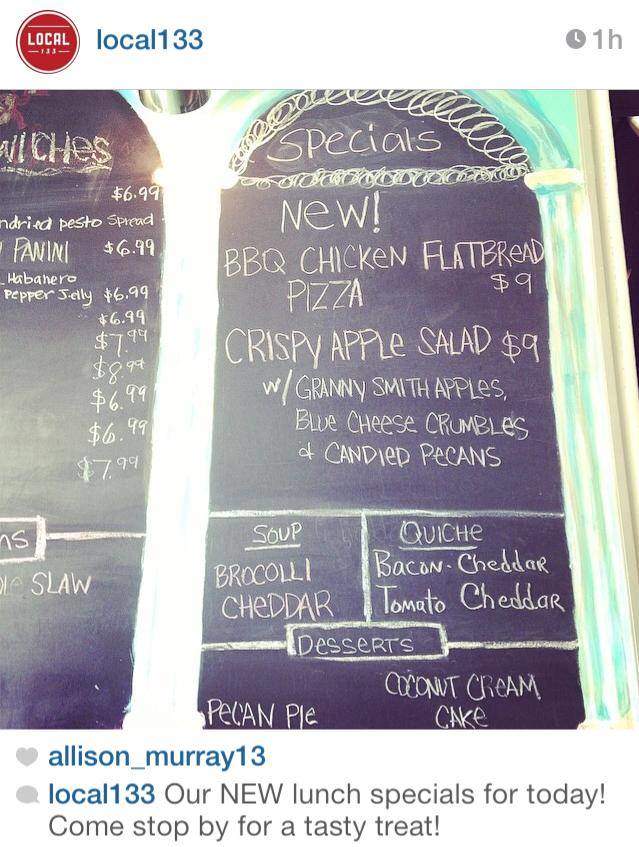 LOCAL
133
local133
1h
$6.99
Spread
PANINI $6.99
Habanero
Pepper Jelly $6.99
$6.99
$7.99
$8.99
$6.99
$6.99
$7.99
SLAW
Specials
New!
BBQ CHICKEN FLATBREAD
PIZZA $9
CRISPY APPLE SALAD $9
w/ GRANNY SMITH APPLES,
BLUE CHEESE CRUMBLES
& CANDIED PECANS
SOUP
BROCOLLI
CHEDDAR
QUICHE
Bacon-Cheddar
Tomato Cheddar
DESSERTS
PECAN PIE
COCONUT CREAM
CAKE
allison_murray13
local133 Our NEW lunch specials for today!
Come stop by for a tasty treat!